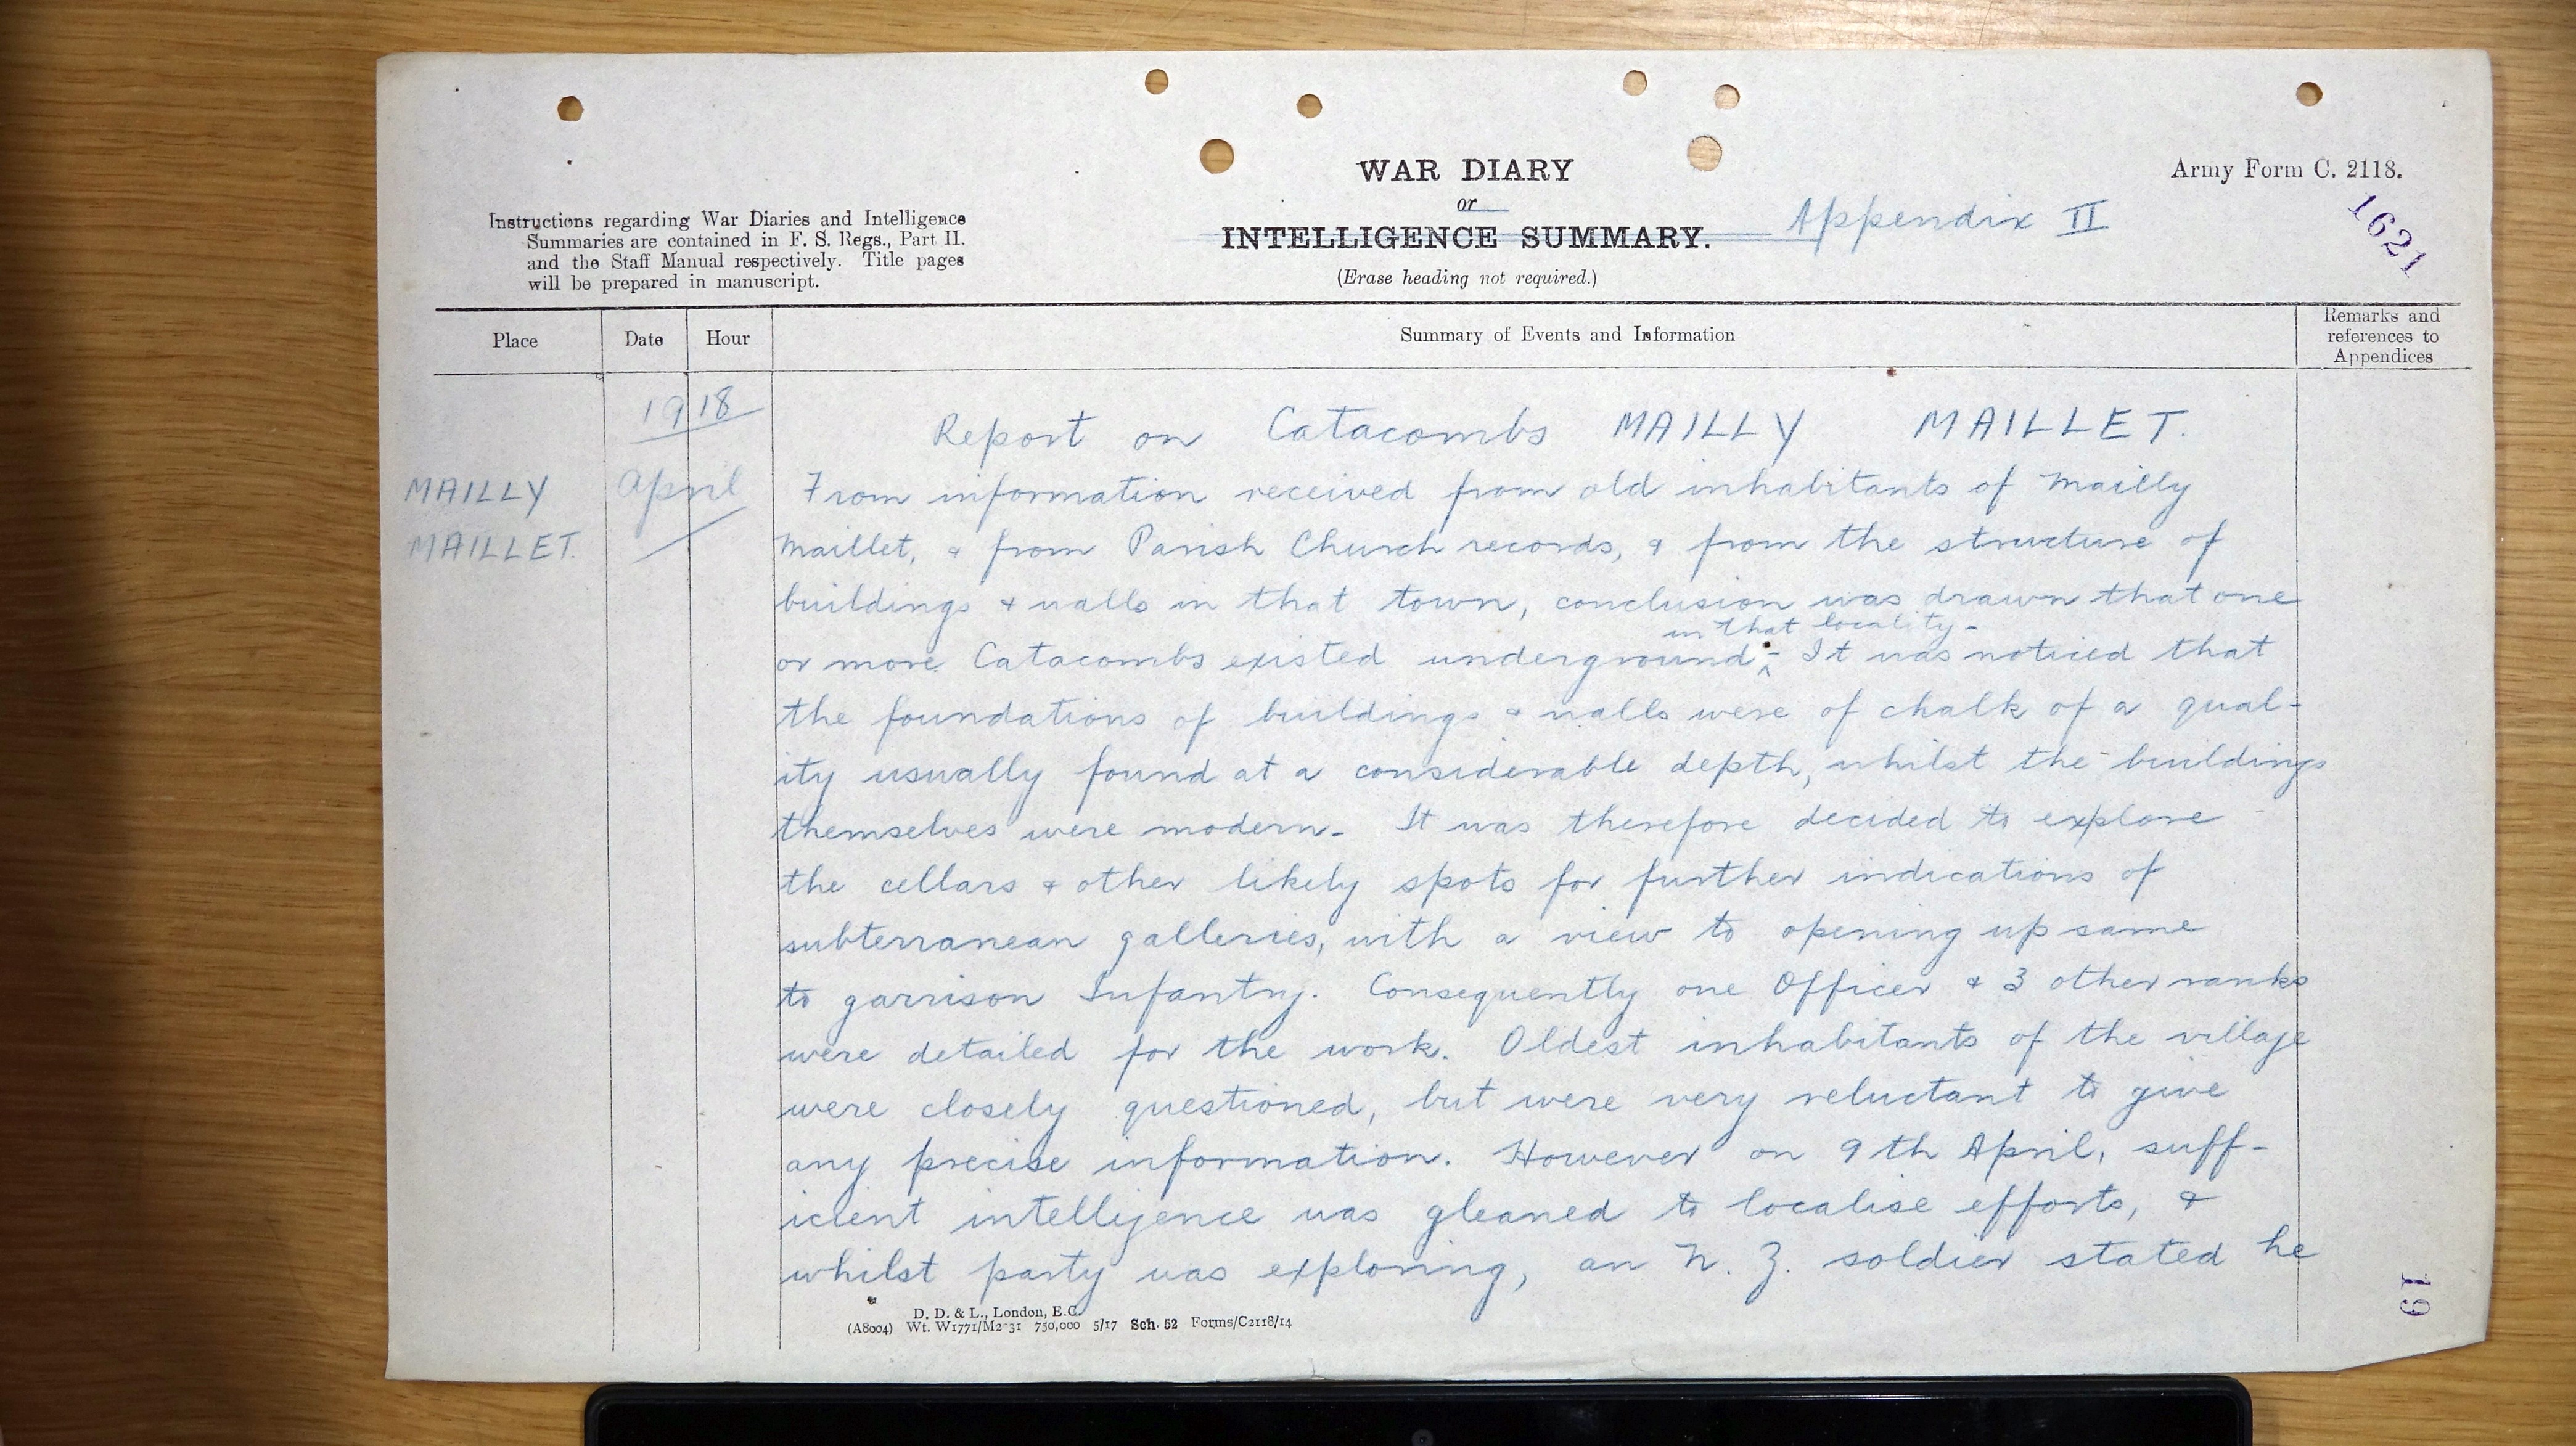 WAR DIARY
or
INTELLIGENCE SUMMARY.
(Erase heading not required.)
Appendix II
Army Form C. 2118.
1621
Instructions regarding War Diaries and Intelligence
Summaries are contained in F. S. Regs., Part II.
and the Staff Manual respectively. Title pages
will be prepared in manuscript.
Place
Date
Hour
Summary of Events and Information
Remarks and
references to
Appendices
1918
MAILLY
MAILLET.
April
Report on Catacombs MAILLY MAILLET.
From information received from old inhabitants of Mailly
Maillet, & from Parish Church records, & from the structure of
buildings & walls in that town, conclusion was drawn that one
in that locality-
or more Catacombs existed underground. It was noticed that
the foundations of buildings & walls were of chalk of a qual-
ity usually found at a considerable depth, whilst the buildings
themselves were modern. It was therefore decided to explore
the cellars & other likely spots for further indications of
subterranean galleries, with a view to opening up same
to garrison Infantry. Consequently one Officer & 3 other ranks
were detailed for the work. Oldest inhabitants of the village
were closely questioned, but were very reluctant to give
any precise information. However on 9th April, suff-
icient intelligence was gleaned to localise efforts, &
whilst party was exploring, an N. Z. soldier stated he
D. D. & L., London, E.C.
(A8004) Wt. W1771/M2931 750,000 5/17 Sch. 52 Forms/C2118/14
19